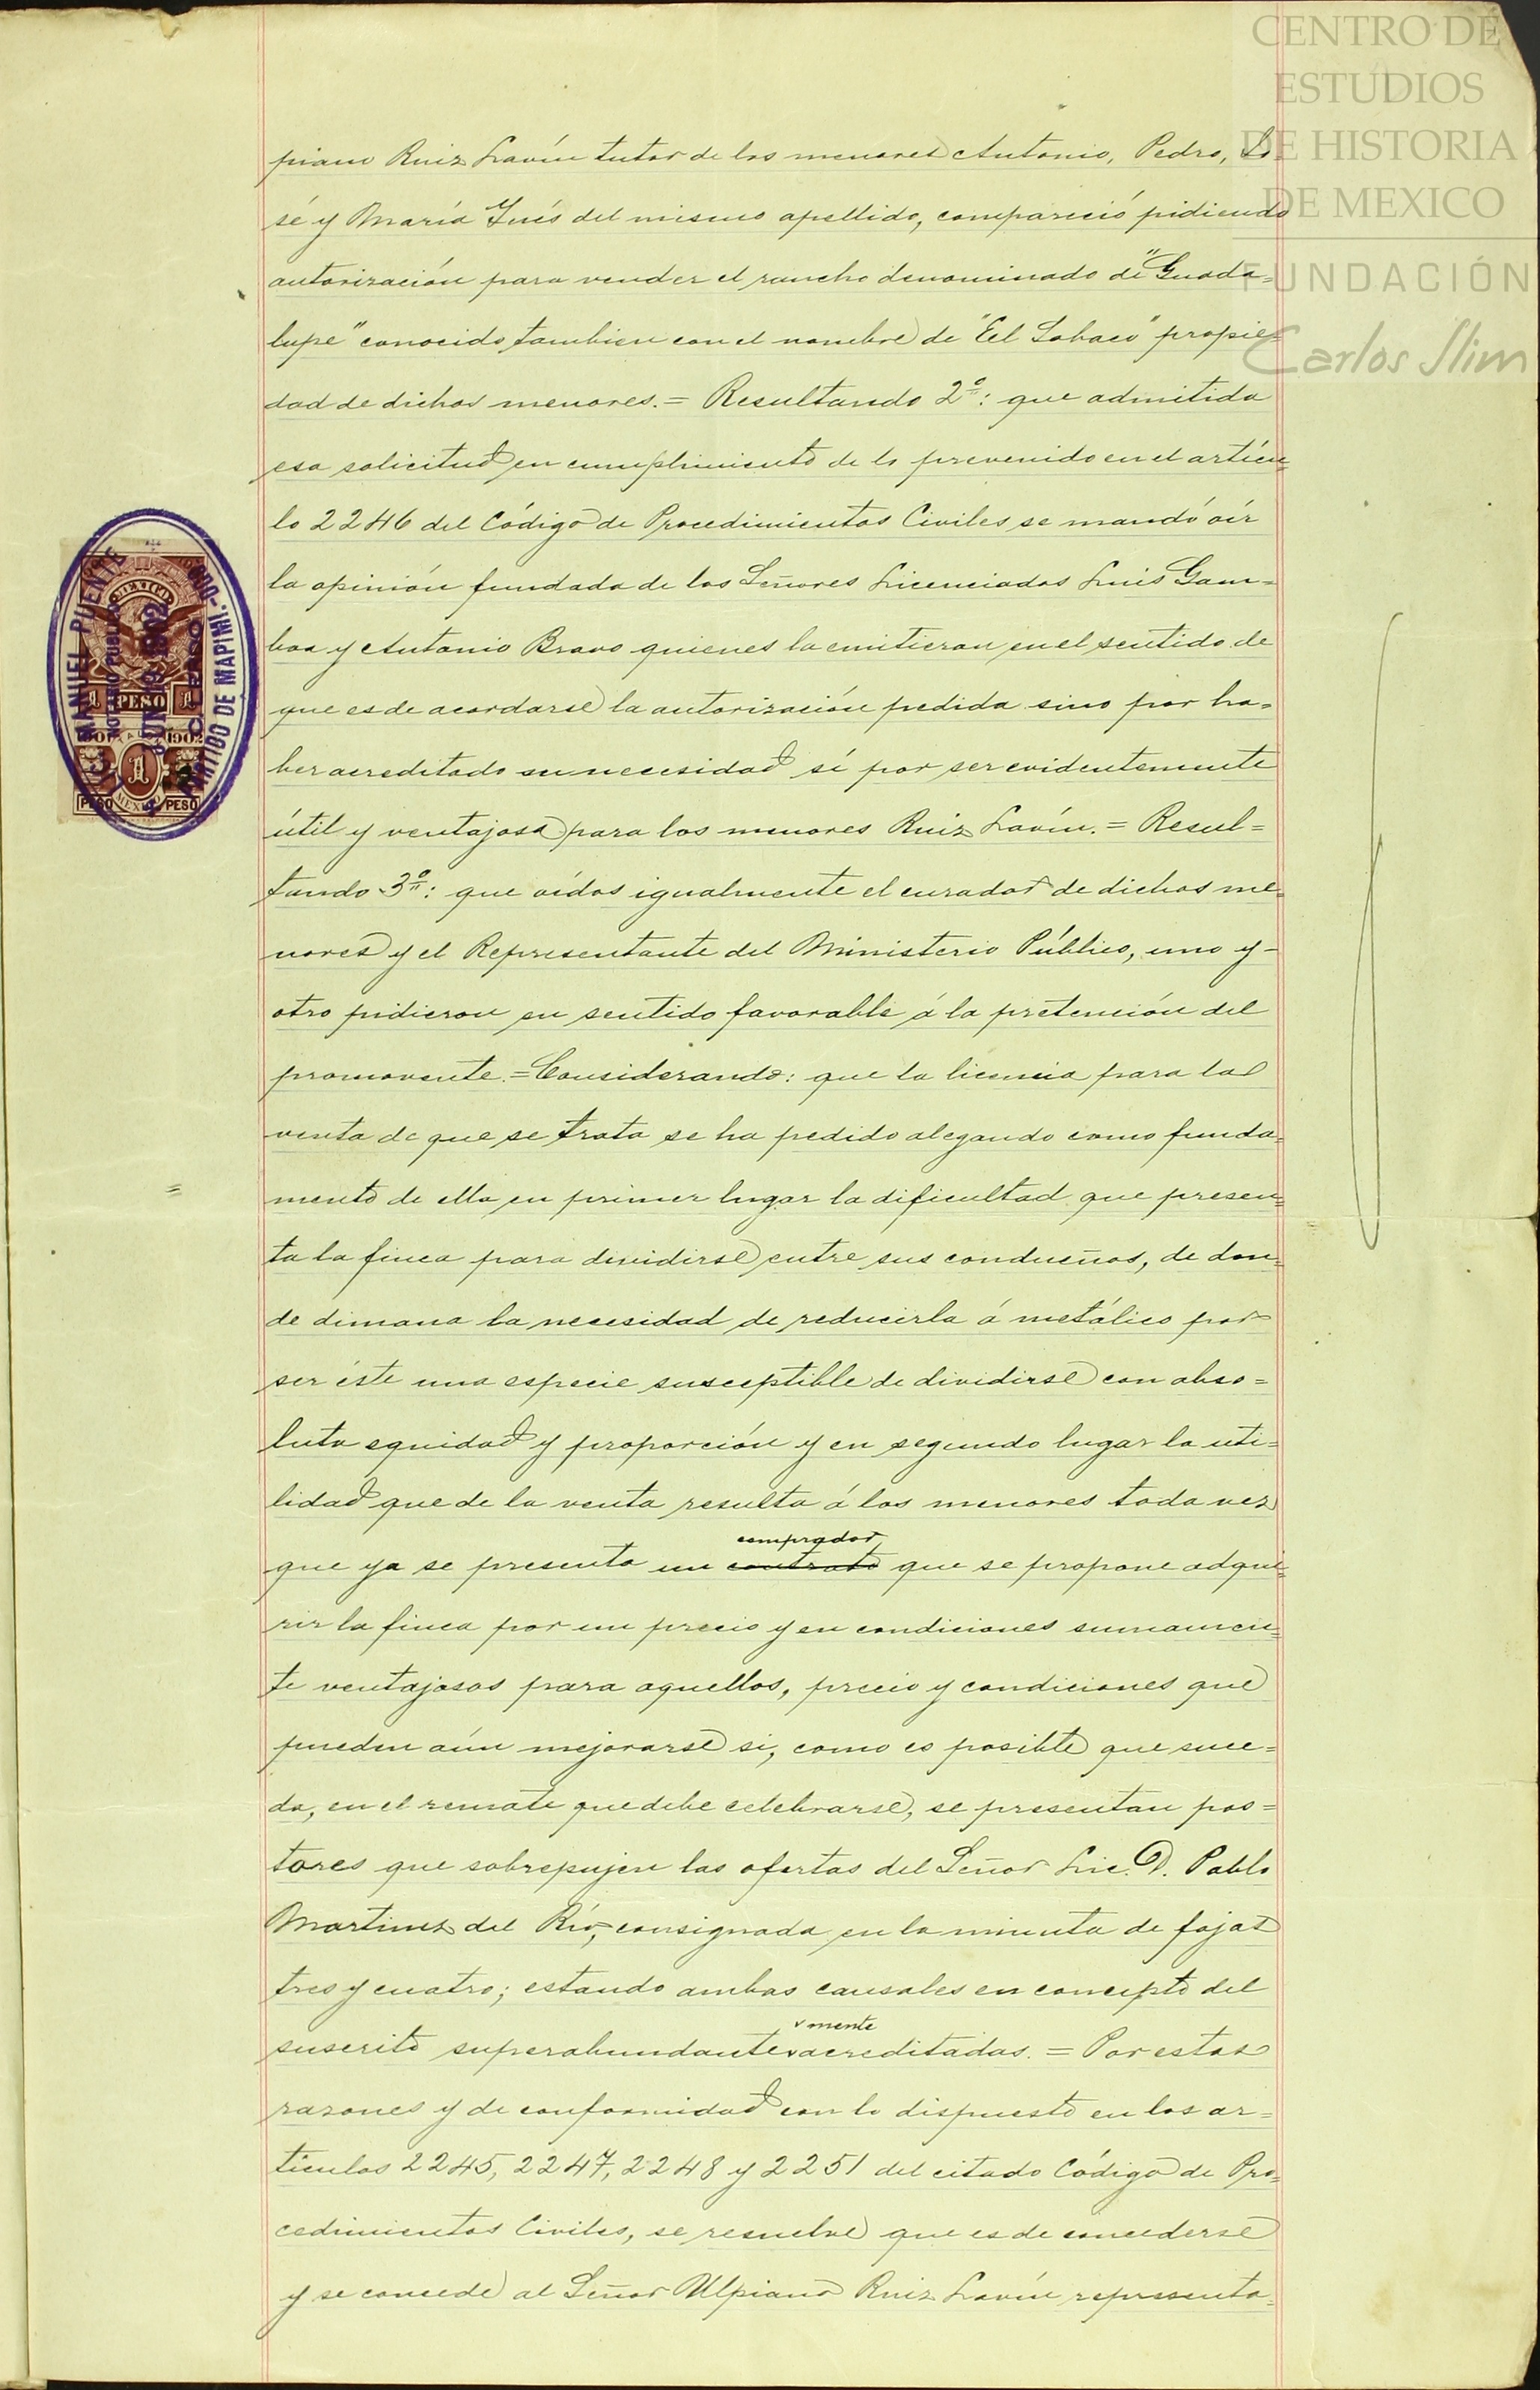 CENTRO DE
ESTUDIOS
DE HISTORIA
DE MEXICO
FUNDACIÓN
Carlos Slim
piano Ruiz Lavín tutor de los menores Antonio, Pedro, Jo-
sé y María Ynés del mismo apellido, compareció pidiendo
autorización para vender el rancho denominado de "Guada=
lupe" conocido tambien con el nombre de "El Sobaco" propie=
dad de dichos menores. = Resultando 2º: que admitida
esa solicitud en cumplimiento de lo prevenido en el artícu=
lo 2246 del Código de Procedimientos Civiles se mandó oír
la opinión fundada de los Señores Licenciados Luis Gam=
boa y Antonio Bravo quienes la emitieron en el sentido de
que es de acordarse la autorización pedida sino por ha=
ber acreditado su necesidad sí por ser evidentemente
útil y ventajosa para los menores Ruiz Lavín. = Resul=
tando 3º: que oídos igualmente el curador de dichos me=
nores y el Representante del Ministerio Público, uno y -
otro pidieron en sentido favorable á la pretención del
promovente. = Considerando: que la licencia para la
venta de que se trata se ha pedido alegando como funda=
mento de ella en primer lugar la dificultad que presen=
ta la finca para dividirse entre sus condueños, de don=
de dimana la necesidad de reducirla á metálico por
ser éste una especie susceptible de dividirse con abso=
luta equidad y proporción y en segundo lugar la uti=
lidad que de la venta resulta á los menores toda vez
comprador
que ya se presenta un contrato que se propone adqui=
rir la finca por un precio y en condiciones sumamen=
te ventajosas para aquellos, precio y condiciones que
pueden aún mejorarse si, como es posible que suce=
da, en el remate que debe celebrarse, se presentan pos=
tores que sobrepujen las ofertas del Señor Lic. D. Pablo
Martinez del Río, consignada en la minuta de fojas
tres y cuatro; estando ambas causales en concepto del
mente
suscrito superabundante acreditadas. = Por estas
razones y de conformidad con lo dispuesto en los ar=
tículos 2245, 2247, 2248 y 2251 del citado Código de Pro=
cedimientos Civiles, se resuelve que es de concederse
y se concede al Señor Ulpiano Ruiz Lavín representa=
MANUEL PUENTE
NOTARIO PUBLICO
JUN 19 1902
PARTIDO DE MAPIMI.-DGO.
1 PESO 1
1901 1902
1
PESO MEXICO PESO